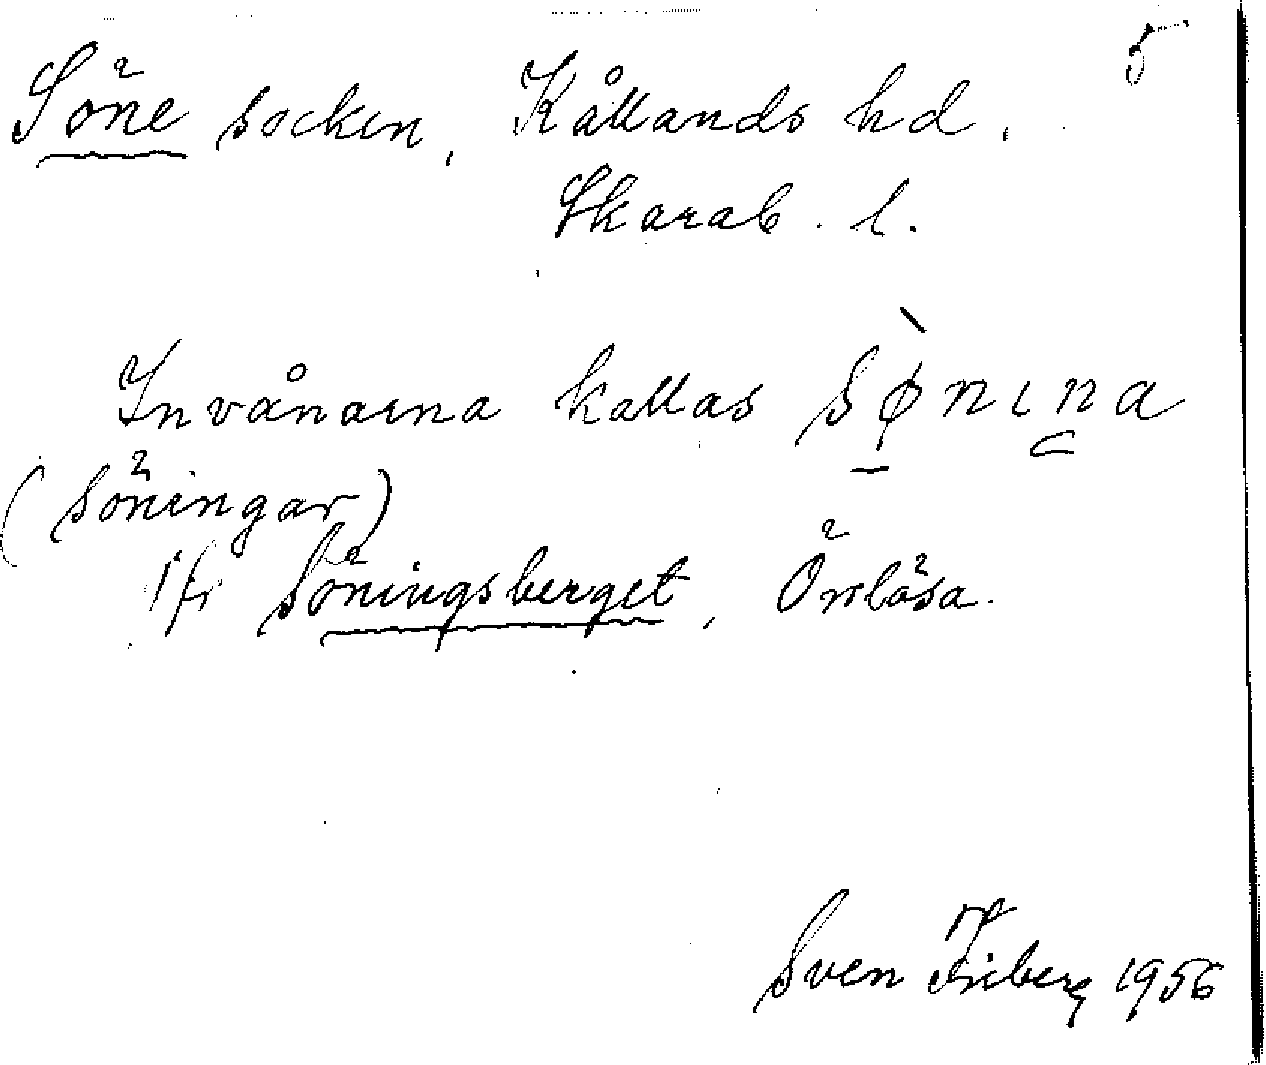 5
Söne socken, Kållands hd.
Skarab. l.
Invånarna kallas sø̀nına
(söningar)
Jfr Söningsberget, Örslösa.
Sven Friberg 1956